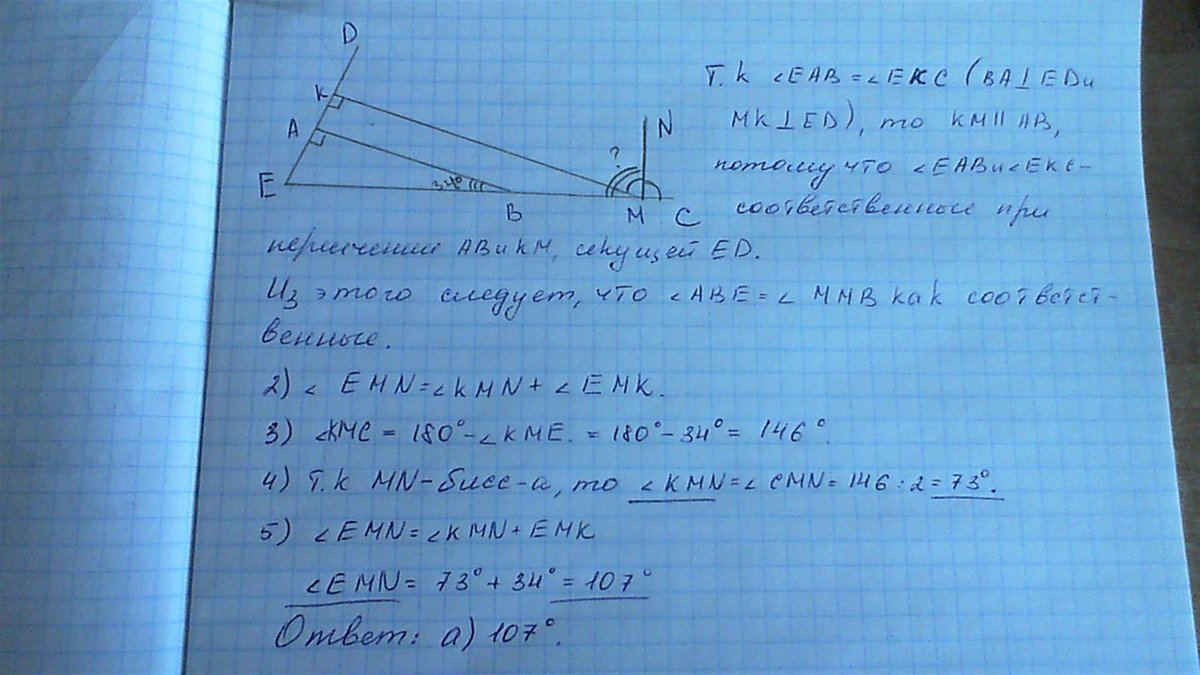 D
K
A
E
34°
B
?
N
M
C
Т.к ∠EAB=∠EKC (BA⊥EDи
MK⊥ED), то KM∥AB,
потому что ∠EABи∠EKC-
соответственные при
AB и KM, секущей ED.
Из этого следует, что ∠ABE=∠ MMB как соответст-
венные.
2) ∠ EMN=∠KMN+∠EMK.
3) ∠KMC = 180°-∠KME. = 180°-34°= 146°.
4) Т.к MN-бисс-а, то ∠KMN=∠CMN=146:2=73°.
5) ∠EMN=∠KMN+EMK
∠EMN= 73°+34°=107°
Ответ: а) 107°.